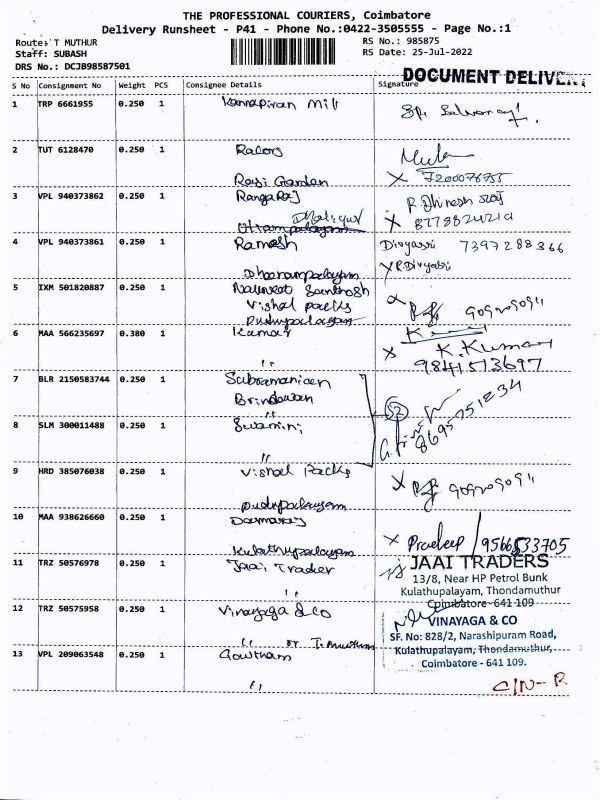 THE PROFESSIONAL COURIERS, Coimbatore
Delivery Runsheet - P41 - Phone No.:0422-3505555 - Page No.:1
Route: T MUTHUR
RS No.: 985875
Staff: SUBASH
RS Date: 25-Jul-2022
DRS No.: DCJB98587501
DOCUMENT DELIVERY
S No Consignment No Weight PCS Consignee Details Signature
1 TRP 6661955 0.250 1 Kannapiran Mill
2 TUT 6128470 0.250 1 Racors
Raji Garden 7200076755
3 VPL 940373862 0.250 1 Rangaraj R. Dhinesh raj
4 VPL 940373861 0.250 1 Ramesh Divyasri 7397288366
Dharampalayam R.Divyasri
5 IXM 501820887 0.250 1 Navneet Santhosh
Vishal Packs 9092090911
Pudupalayam
6 MAA 566235697 0.380 1 Kumar K. Kumar
" 9841573697
7 BLR 2150583744 0.250 1 Subramanian
Brindavan
" 8695751234
8 SLM 300011488 0.250 1 Swamini
"
9 HRD 385076038 0.250 1 Vishal Packs 9092090911
Pudupalayam
10 MAA 938626660 0.250 1 Darmaraj Pradeep / 9566533705
Kulathupalayam
11 TRZ 50576978 0.250 1 Jaai Trader
JAAI TRADERS
13/8, Near HP Petrol Bunk
Kulathupalayam, Thondamuthur
Coimbatore-641 109
12 TRZ 50575958 0.250 1 Vinayaga & co
" T. Muthur
VINAYAGA & CO
SF. No: 828/2, Narashipuram Road,
Kulathupalayam, Thondamuthur,
Coimbatore - 641 109.
13 VPL 209063548 0.250 1 Gowtham
" C/N-R